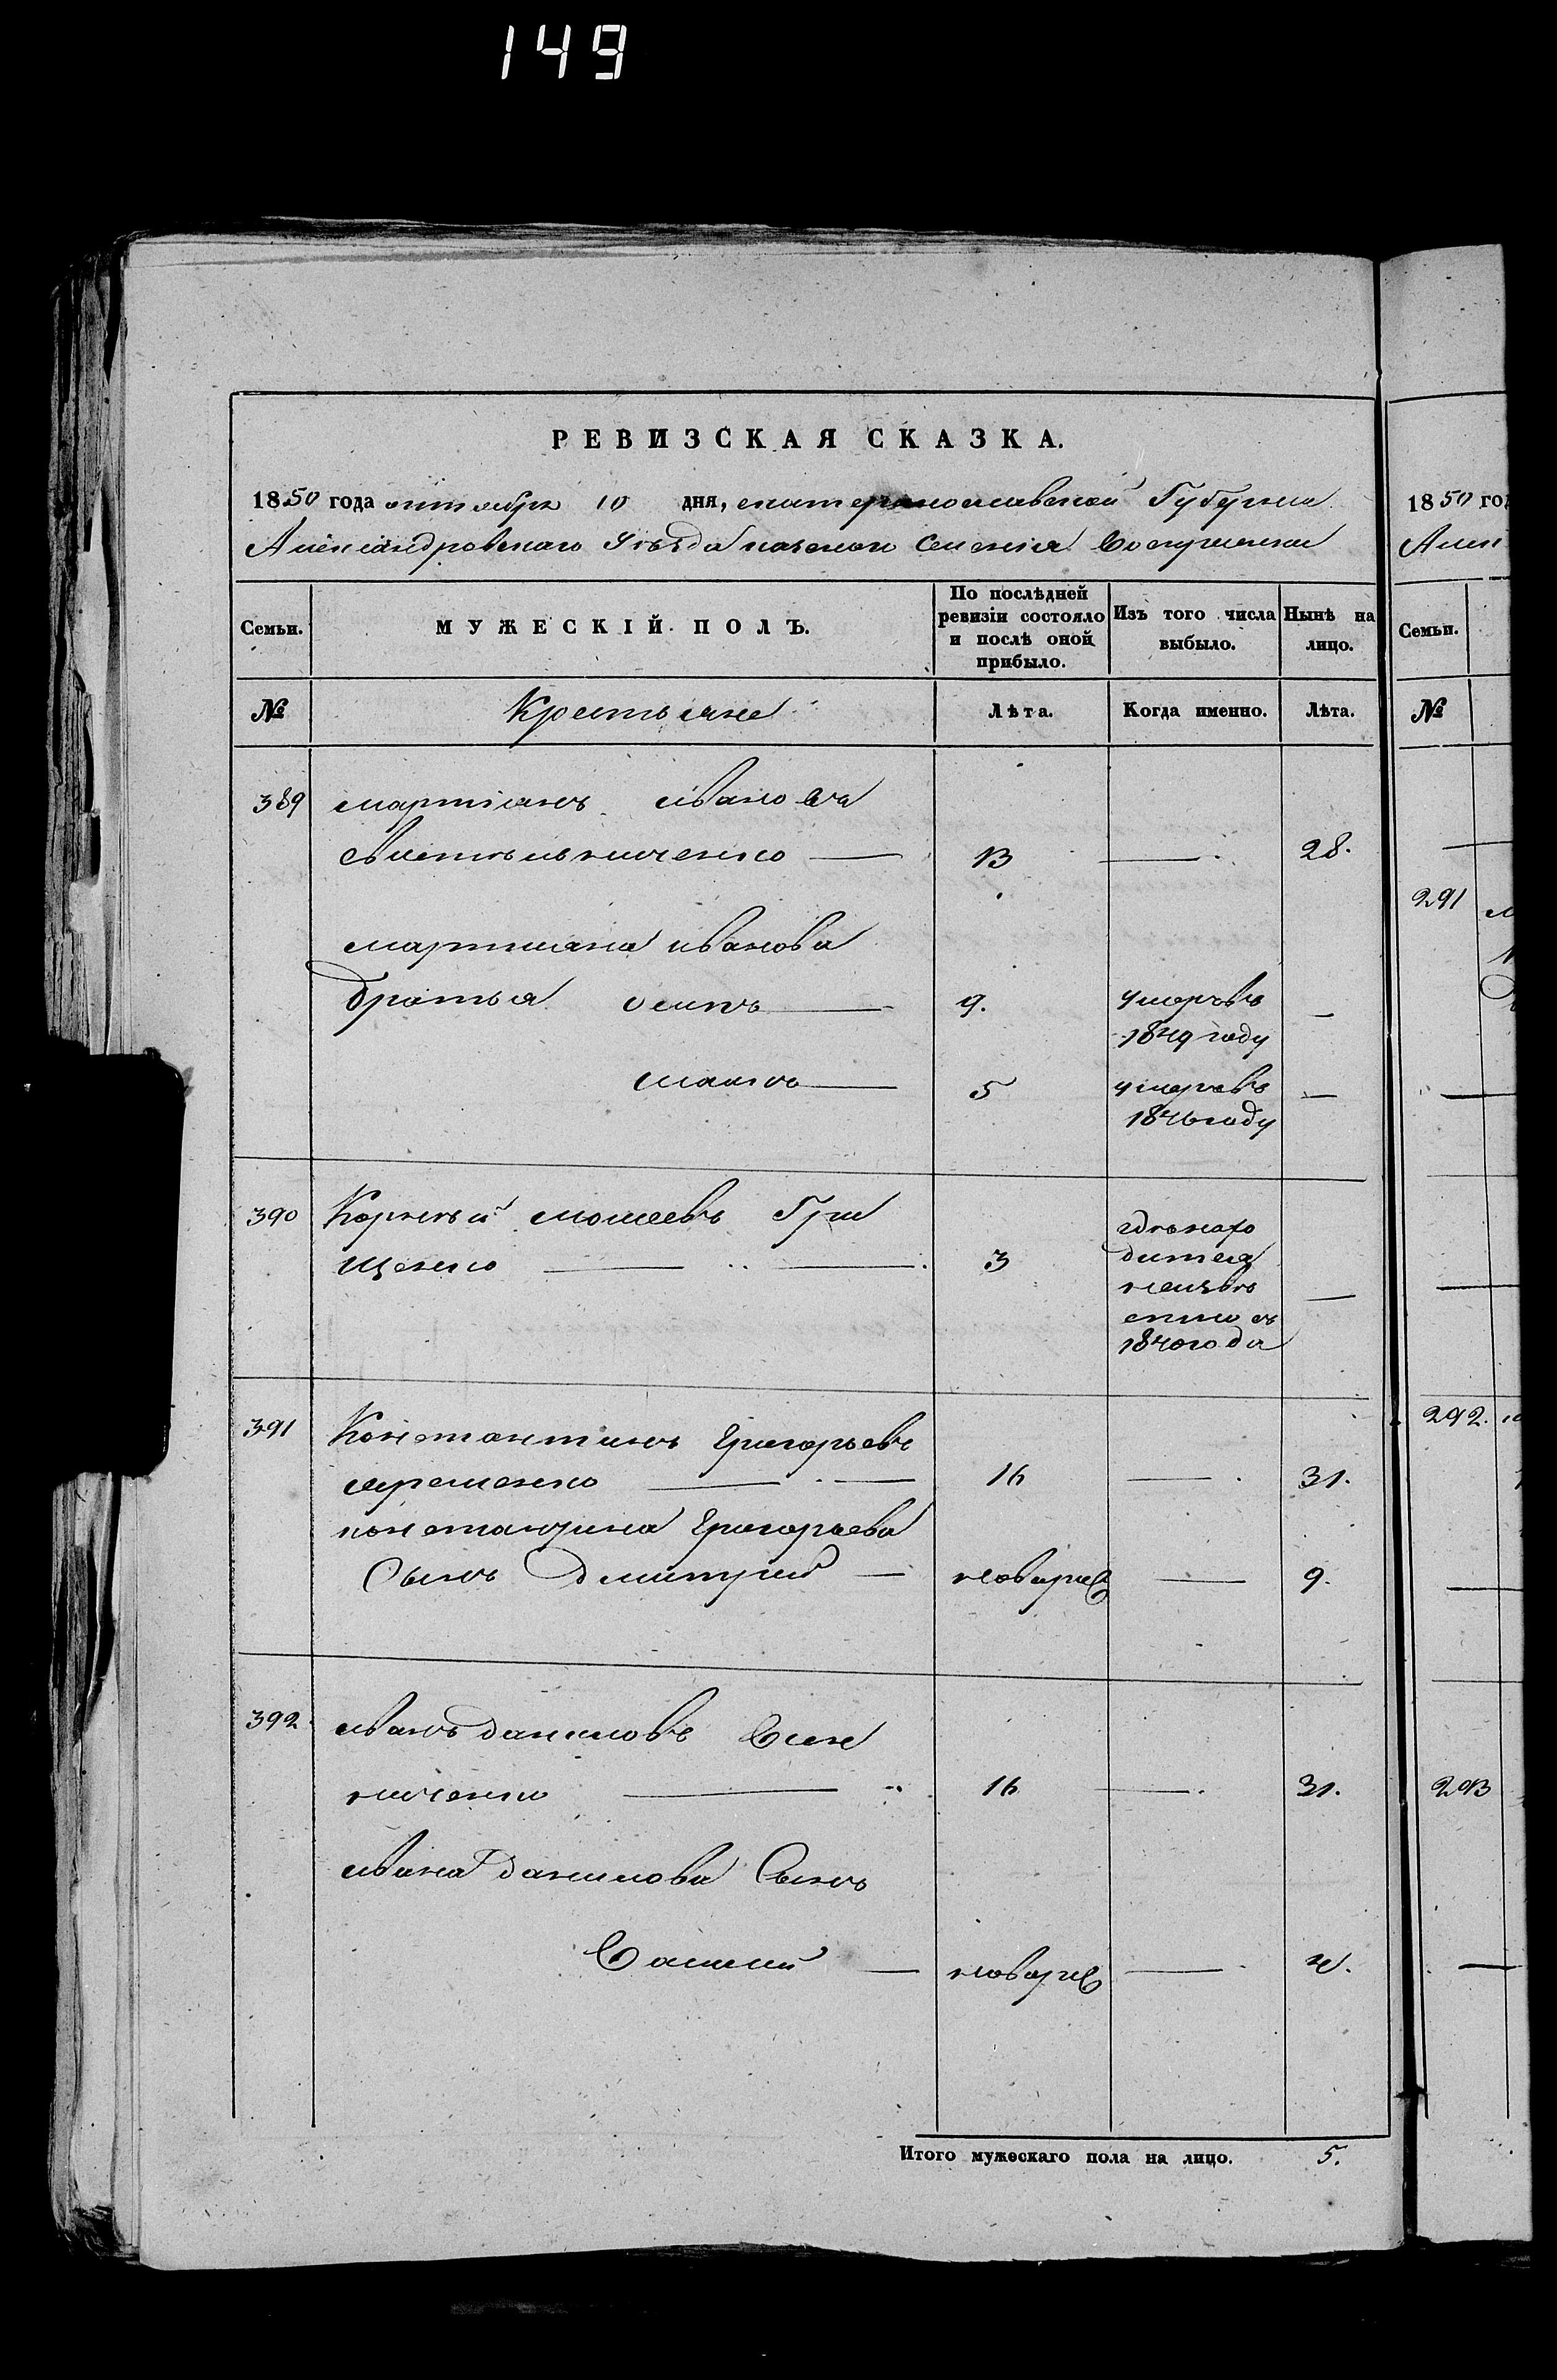 149
РЕВИЗСКАЯ СКАЗКА.
1850 года октября 10 дня, екатеринославской Губернии
Александровскаго Уѣзда казенаго Селения Воскресенки
Семьи.
МУЖЕСКІЙ ПОЛЪ.
По послѣдней ревизіи состояло и послѣ оной прибыло.
Изъ того числа выбыло.
Нынѣ на лицо.
№ Крестьяне Лѣта. Когда именно. Лѣта.
389 мартіанъ ивановъ
13 — 28.
мартиана иванова
братья осипъ — 9. умеръ въ —
1849 году
5 умеръ въ —
1846 году
390 Корнѣй моисеевъ Гри
щенко — 3
гдѣ нахо
дится
неизвѣ
стно съ
1840 года
—
391 Константинъ Григорьевъ
яременко — 16 — 31.
константина Григорьева
Сынъ Дмитрий — новорж — 9.
392 иванъ даниловъ Син
ниченко — 16 — 31.
ивана данилова Сынъ
Василий — новорж — 4.
Итого мужескаго пола на лицо. 5.
1850 год
Алек
Семьи.
№
291
292.
293